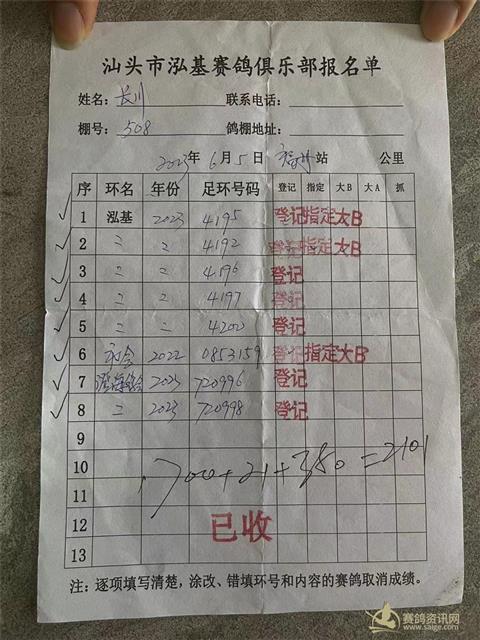 汕头市泓基赛鸽俱乐部报名单
姓名: 长川 联系电话:
棚号: 508 鸽棚地址:
2023年6月5日 福州站 公里
序 环名 年份 足环号码 登记 指定 大B 大A 抓
1 泓基 2023 4195 登记指定大B
2 二 二 4192 登记指定大B
3 二 二 4596 登记
4 二 二 4197 登记
5 二 二 4200 登记
6 2022 0853159 登记指定大B
7 2023 720996 登记
8 二 2023 720998 登记
9
10
11
12
13
已收
注: 逐项填写清楚, 涂改、错填环号和内容的赛鸽取消成绩。
赛鸽资讯网
www.saige.com